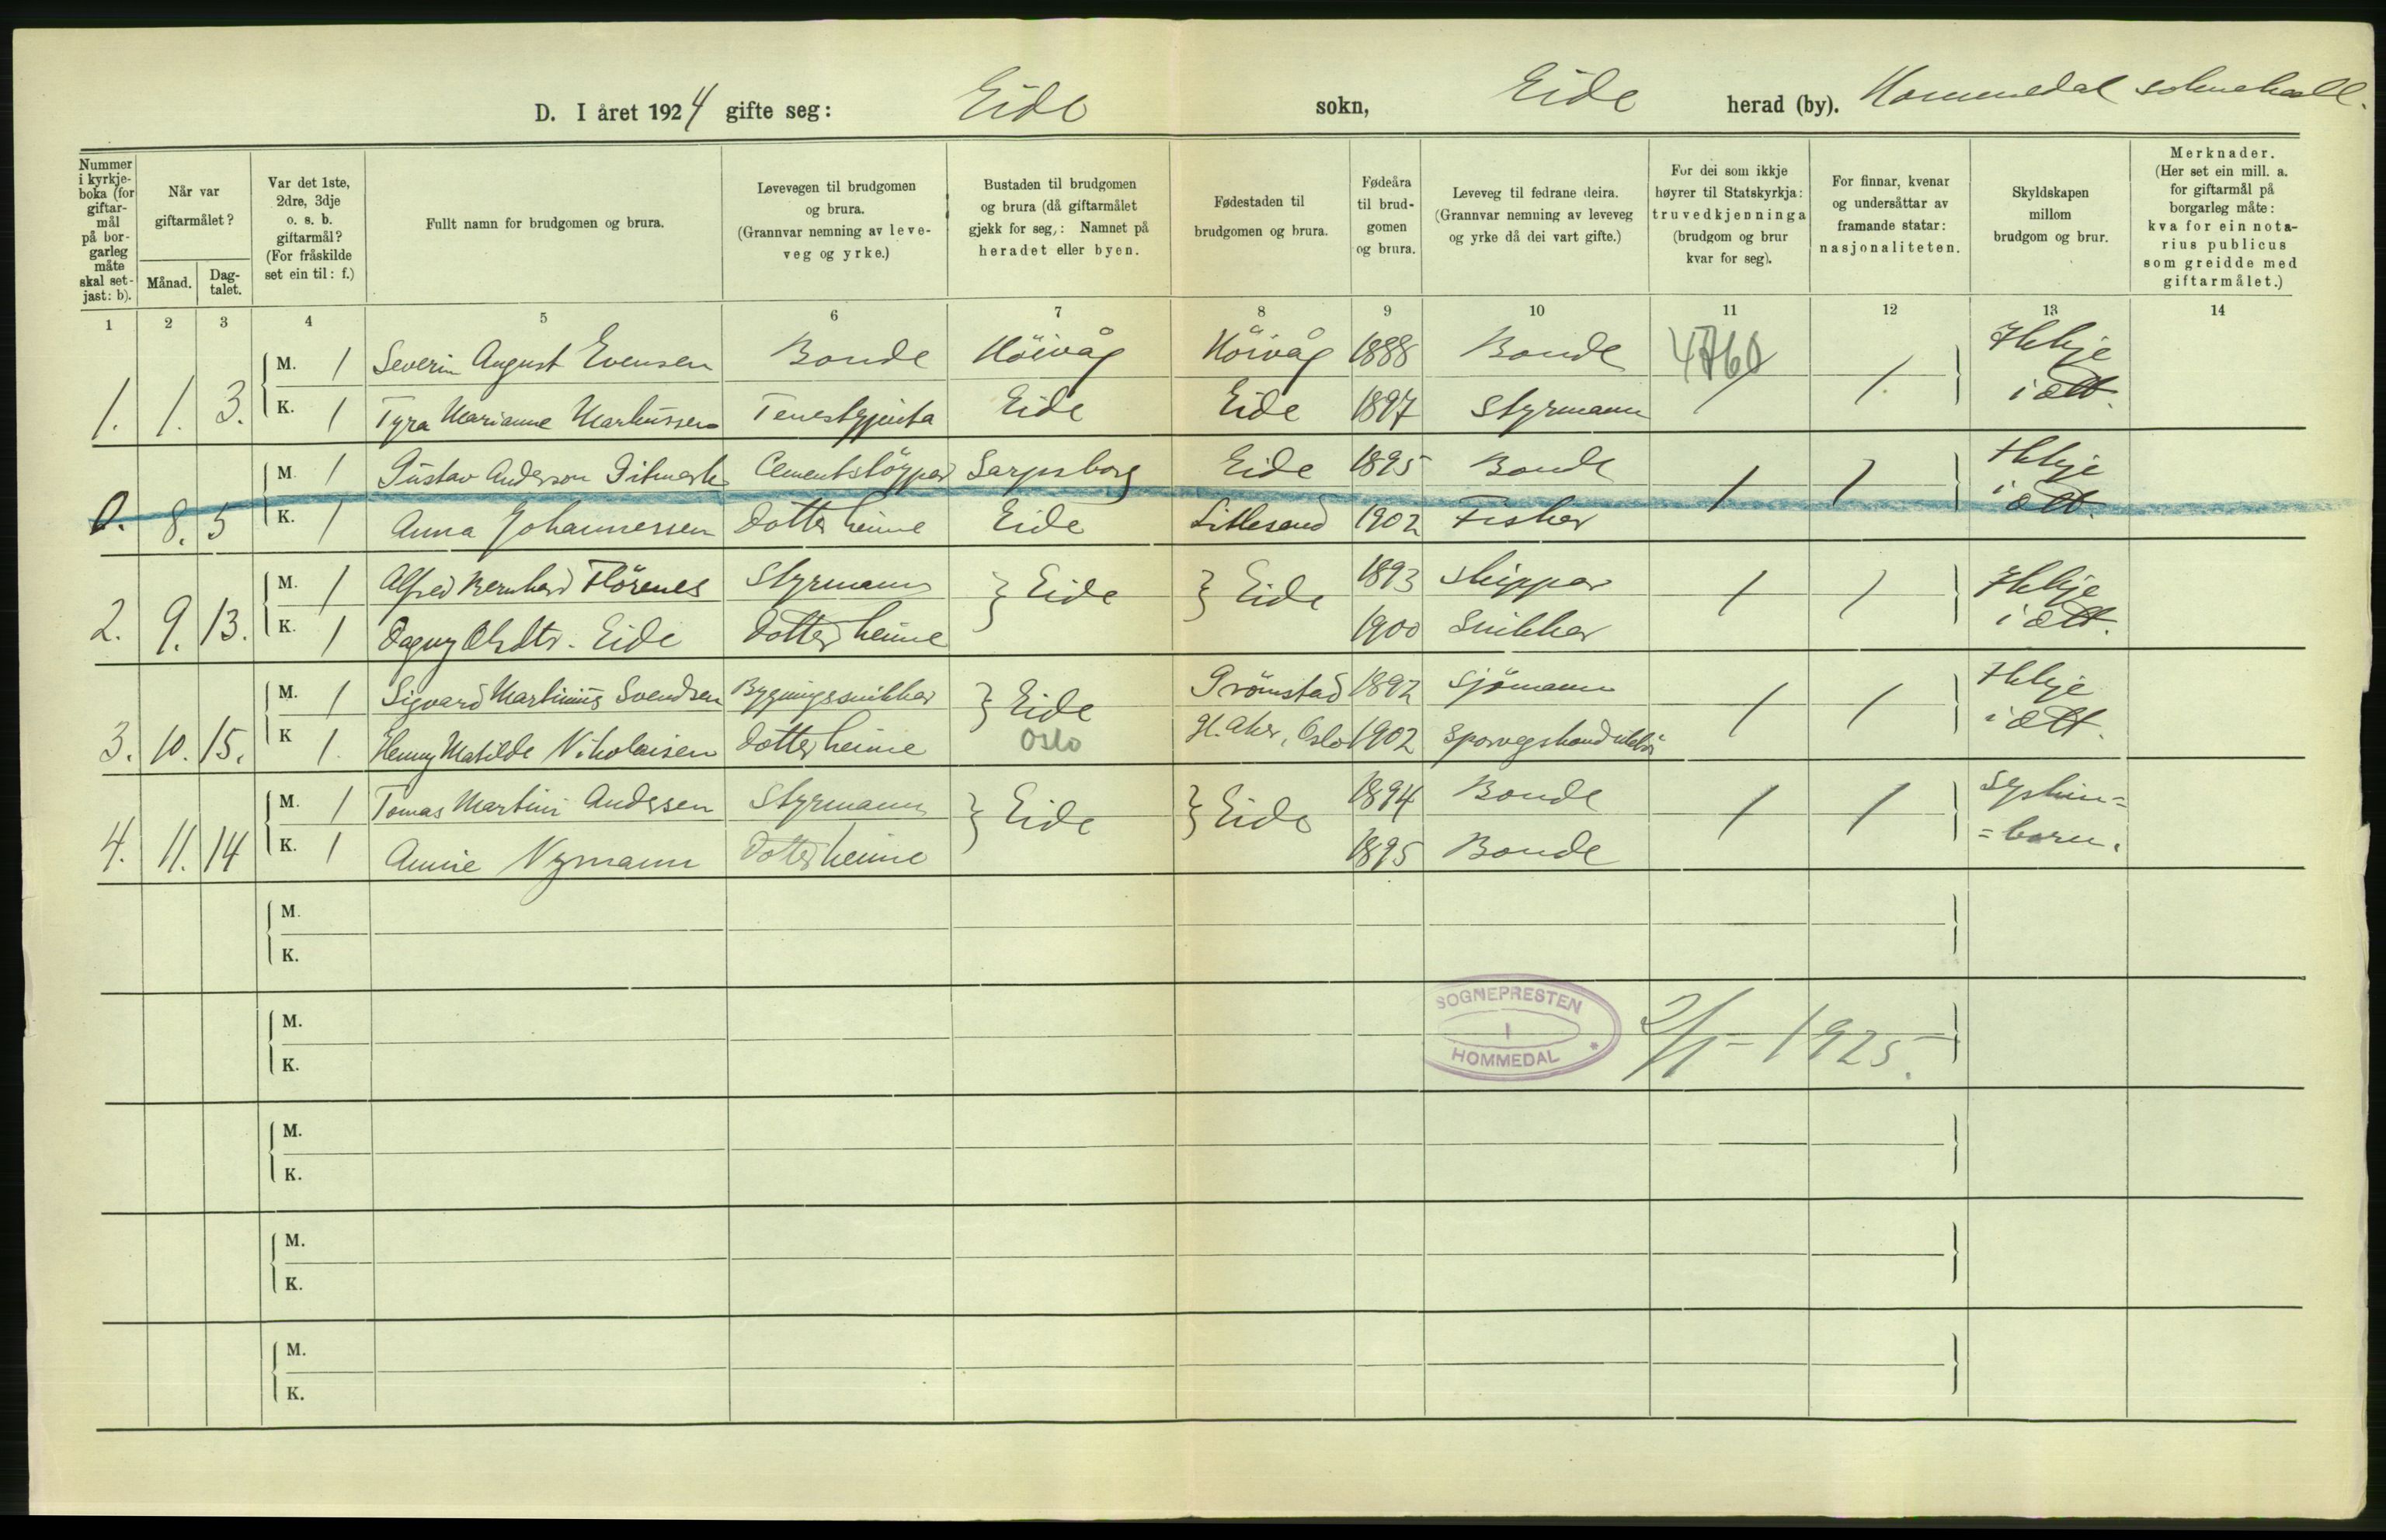 D. I året 1924 gifte seg: Eide sokn, Eide herad (by). Hommedal soknekall.
Nummer i kyrkje-boka (for giftar-mål på bor-garleg måte skal set-jast: b).
Når var giftarmålet?
Månad.
Dag-talet.
Var det 1ste, 2dre, 3dje o. s. b. giftarmål? (For fråskilde set ein til: f.)
Fullt namn for brudgomen og brura.
Levevegen til brudgomen og brura. (Grannvar nemning av leve-veg og yrke.)
Bustaden til brudgomen og brura (då giftarmålet gjekk for seg,: Namnet på heradet eller byen.
Fødestaden til brudgomen og brura.
Fødeåra til brud-gomen og brura.
Leveveg til fedrane deira. (Grannvar nemning av leveveg og yrke då dei vart gifte.)
For dei som ikkje høyrer til Statskyrkja: truvedkjenninga (brudgom og brur kvar for seg).
For finnar, kvenar og undersåttar av framande statar: nasjonaliteten.
Skyldskapen millom brudgom og brur.
Merknader. (Her set ein mill. a. for giftarmål på borgarleg måte: kva for ein nota-rius publicus som greidde med giftarmålet.)
1 2 3 4 5 6 7 8 9 10 11 12 13 14
1. 1. 3. M. 1 Severin August Evensen Bonde Höivåg Höivåg 1888 Bonde 4760 / / Ikkje i ætt.
K. 1 Tyra Marianne Markussen Tenestgjenta Eide Eide 1897 Styrmann
0. 8. 5 M. 1 Gustav Anderson Ditmark Cementstöypar Sarpsborg Eide 1895 Bonde / / Ikkje i ætt.
K. 1 Anna Johannessen Dotter heime Eide Lillesand 1902 Fisker
2. 9. 13. M. 1 Alfred Bernhard Flörenes Styrmann } Eide } Eide 1893 Skippar / / Ikkje i ætt.
K. 1 Dagny Olsdtr. Eide Dotter heime 1900 Snikkar
3. 10. 15. M. 1 Sigvard Martinius Svendsen Bygningssnikkar } Eide Grömstad 1892 Sjömann / / Ikkje i ætt.
K 1. Henny Matilde Nikolaisen Dotter heime Oslo Gl. Aker, Oslo 1902 Sporvegskonduktör
4. 11. 14 M. 1 Tomas Martin Andersen Styrmann } Eide } Eide 1894 Bonde / / Syskin=
K. 1 Annie Nymann Dotter heime 1895 Bonde =born.
M.
K.
M.
K.
SOGNEPRESTEN I HOMMEDAL *
2/1-1925.
M.
K.
M.
K.
M.
K.